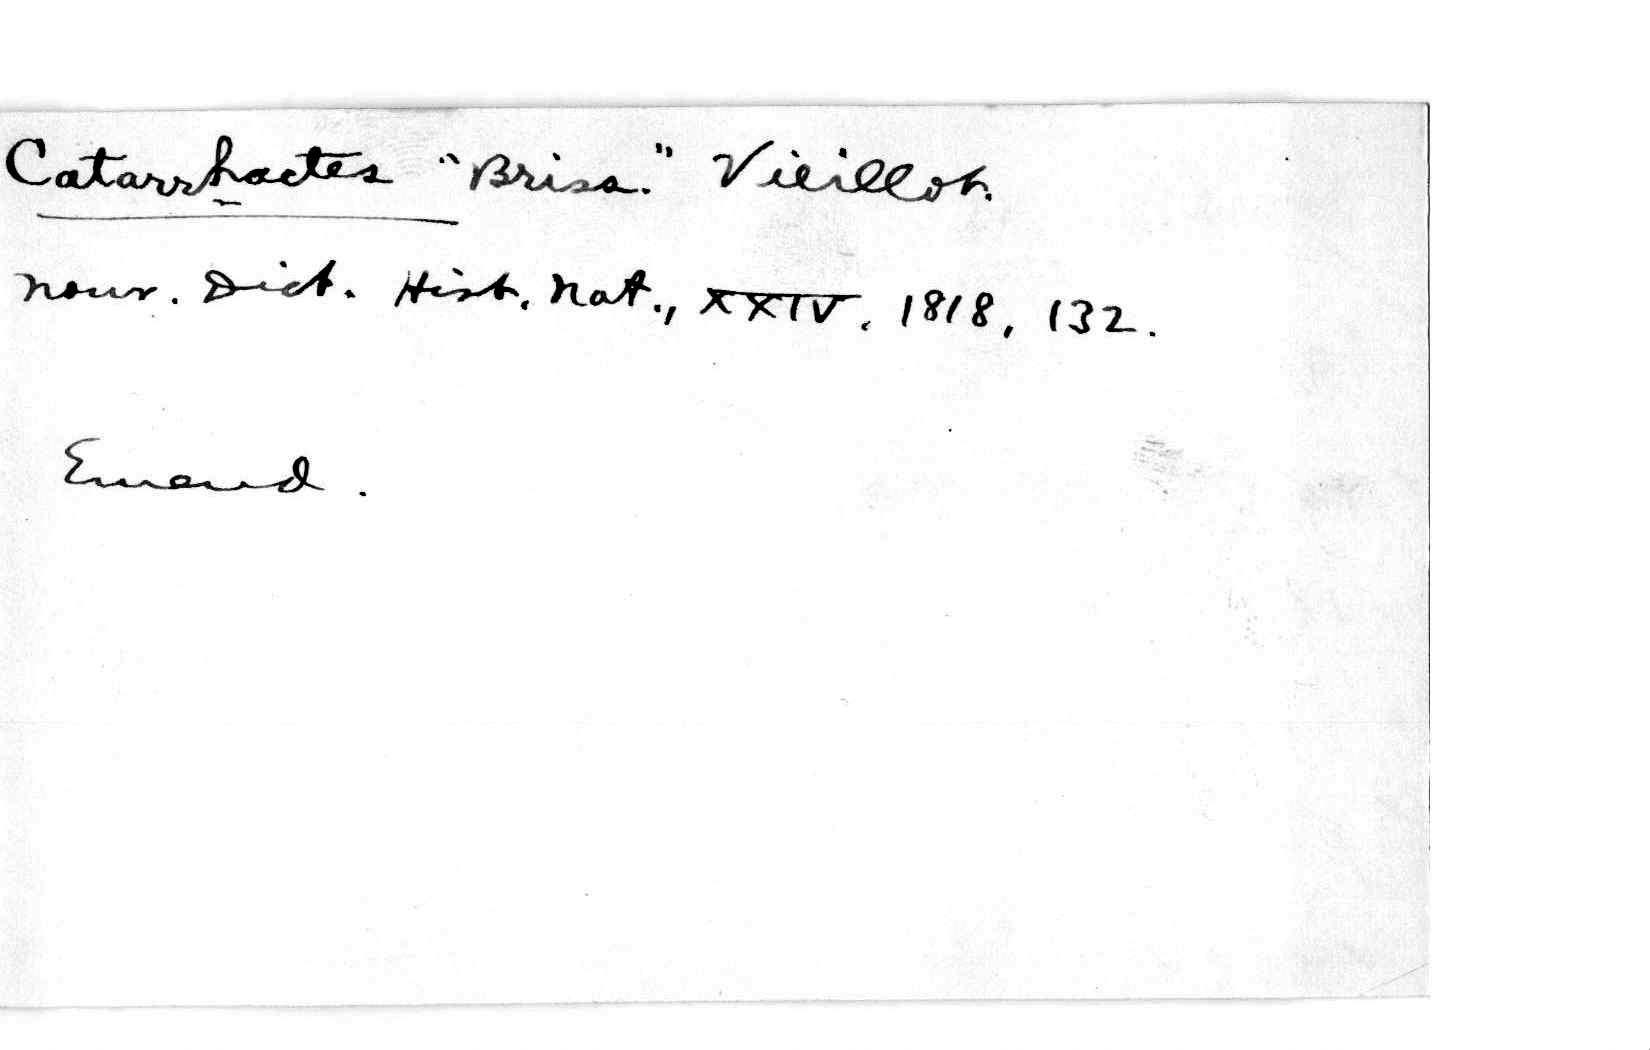 Catarrhactes "Briss." Vieillot.
Nouv. Dict. Hist. Nat., XXIV, 1818, 132.
Emend.